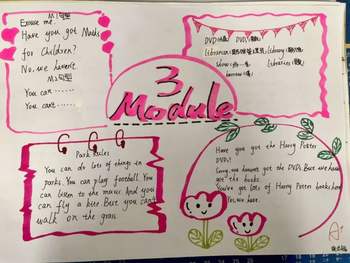 M1句型
Excuse me.
Have you got Maths
for Children?
No, we haven't.
M2句型
You can ……
You can't ……
DVD
Librarian
Library
show
Libraries
borrow
3
Module
Park Rules
You can do lots of things in
parks. You can play football. You
can listen to the music. And you
can fly a kite. But you can't
walk on the grass.
Have you got the Harry Potter
DVD?
Sorry, we haven't got the DVD. But we have
the books.
You've got lots of Harry Potter books here.
Yes, we have.
A+